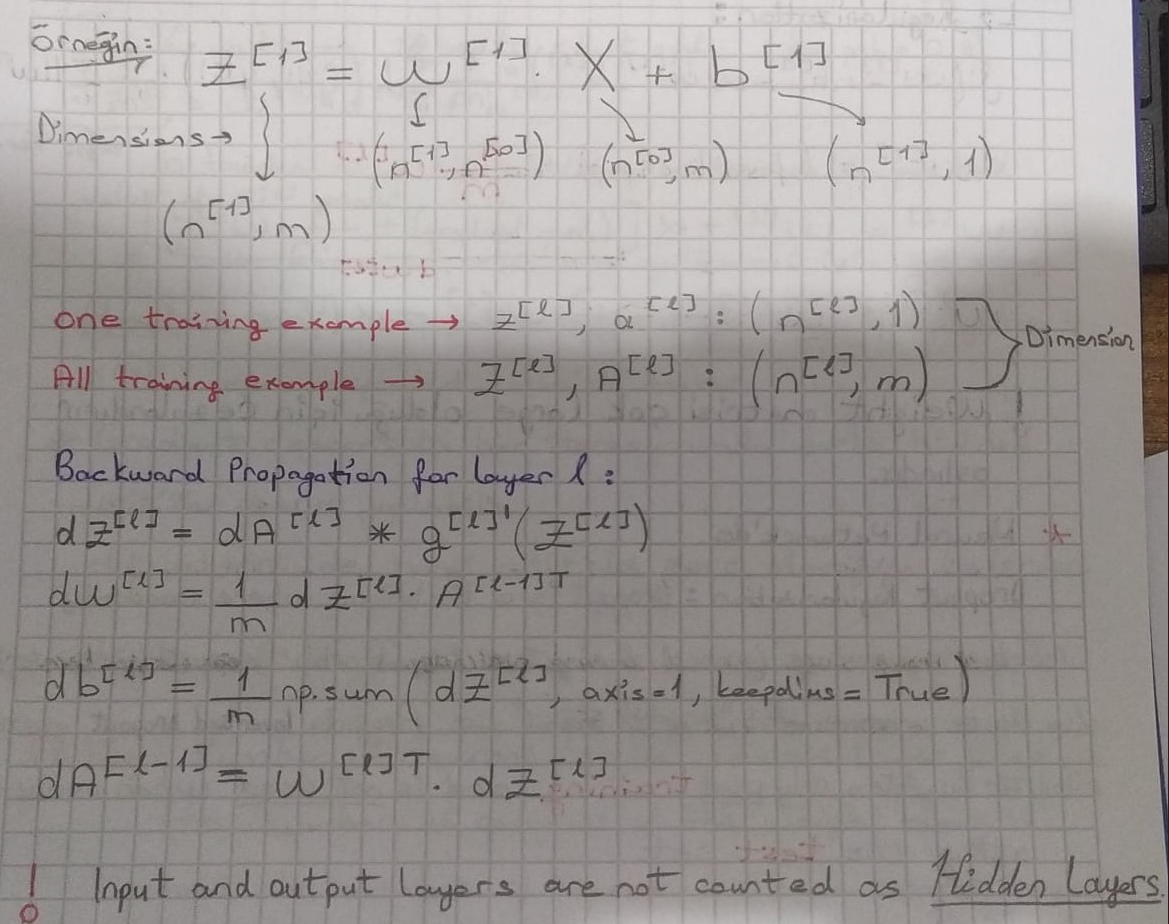 Örneğin: Z^[1] = W^[1] . X + b^[1]
Dimensions → (n^[1], n^[0]) (n^[0], m) (n^[1], 1)
(n^[1], m)
One training example → z^[l], a^[l] : (n^[l], 1)
All training example → Z^[l], A^[l] : (n^[l], m) } Dimension
Backward Propagation for layer l :
dZ^[l] = dA^[l] * g^[l]'(Z^[l])
dW^[l] = 1/m dZ^[l] . A^[l-1]T
db^[l] = 1/m np.sum(dZ^[l], axis=1, keepdims=True)
dA^[l-1] = W^[l]T . dZ^[l]
! Input and output layers are not counted as Hidden Layers.